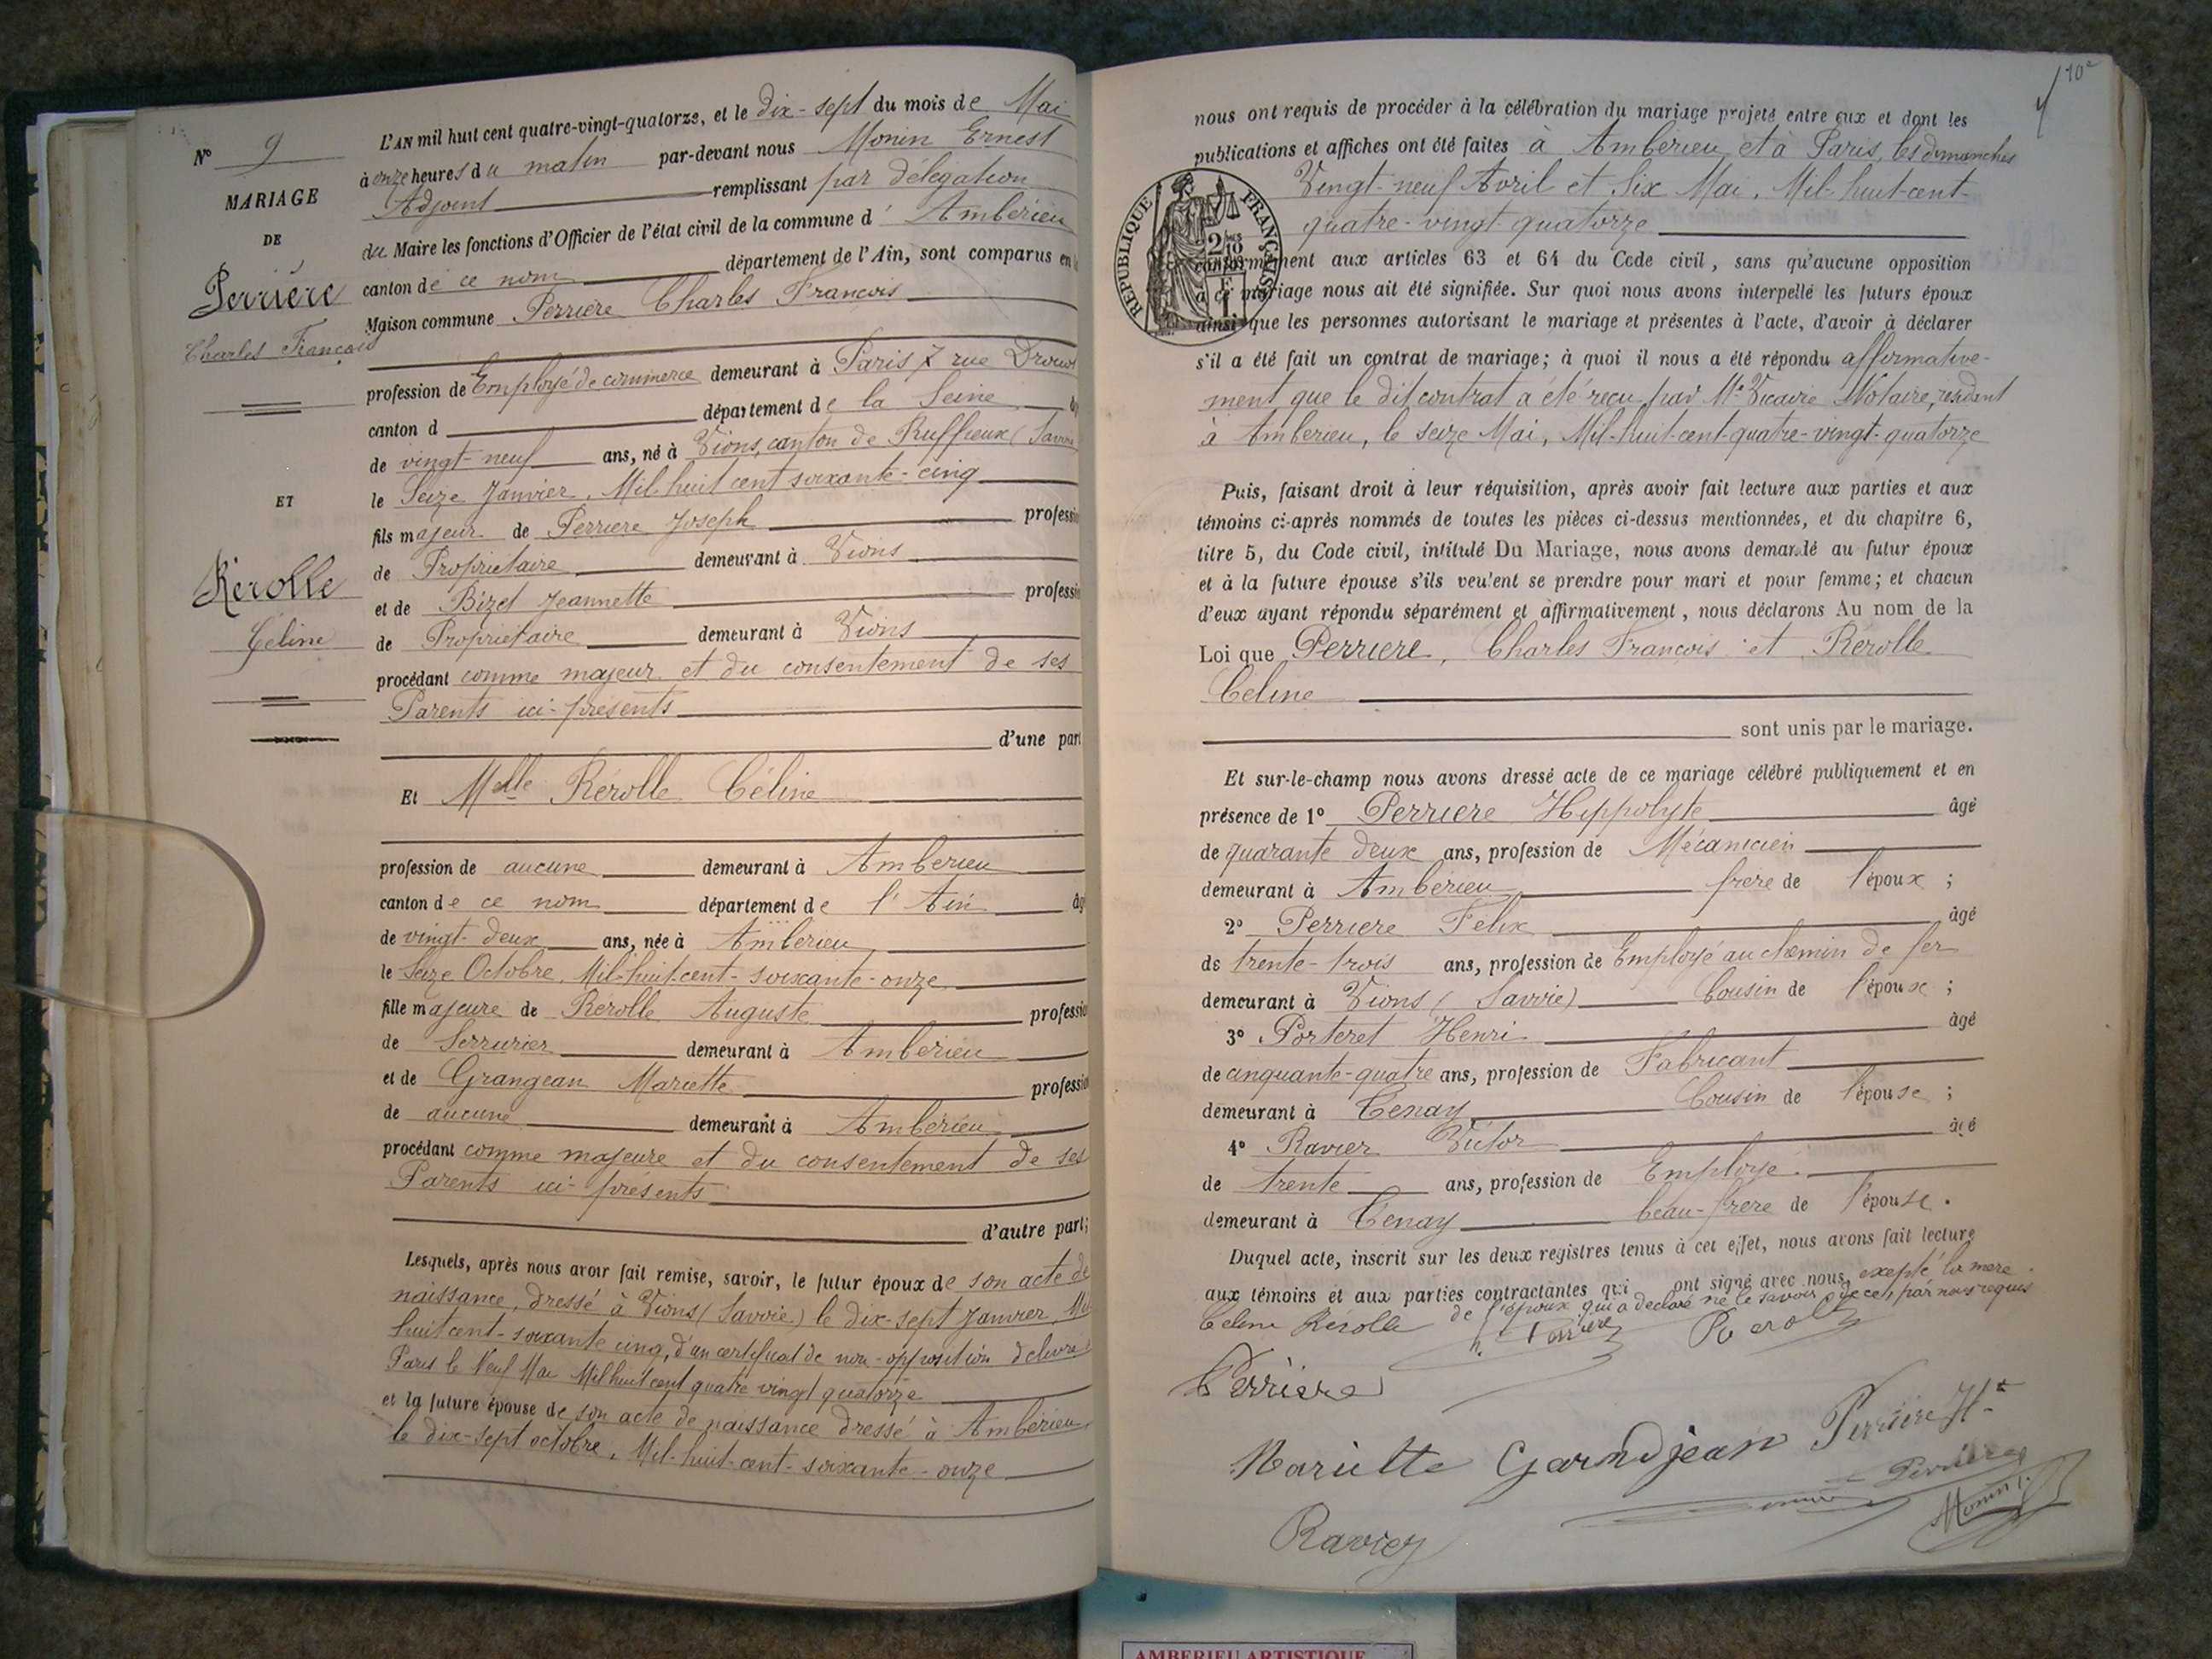 N° 9
MARIAGE
DE
Perrière
Charles François
ET
Rérolle
Céline
L'AN mil huit cent quatre-vingt-quatorze, et le dix-sept du mois de Mai
à onze heures du matin par-devant nous Monin Ernest
Adjoint remplissant par délégation
du Maire les fonctions d'Officier de l'état civil de la commune d' Ambérieu
canton de ce nom département de l'Ain, sont comparus en
Maison commune Perriere Charles François
profession de Employé de commerce demeurant à Paris 7 rue Drouot
canton d département de la Seine
de vingt-neuf ans, né à Vions, canton de Ruffieux (Savoie
le Seize Janvier, Mil huit cent soixante-cinq
fils majeur de Perriere Joseph profession
de Propriétaire demeurant à Vions
et de Bizet Jeannette profession
de Propriétaire demeurant à Vions
procédant comme majeur et du consentement de ses
Parents ici-présents
d'une part
Et Melle Rérolle Céline
profession de aucune demeurant à Ambérieu
canton de ce nom département de l'Ain âg
de vingt-deux ans, née à Ambérieu
le Seize Octobre, Mil-huit-cent-soixante-onze
fille majeure de Rérolle Auguste profession
de Serrurier demeurant à Ambérieu
et de Grangean Mariette profession
de aucune demeurant à Ambérieu
procédant comme majeure et du consentement de ses
Parents ici-présents
d'autre part;
Lesquels, après nous avoir fait remise, savoir, le futur époux de son acte de
naissance, dressé à Vions (Savoie) le dix-sept Janvier, Mil
huit cent-soixante cinq, d'un certificat de non-opposition délivré à
Paris le Neuf Mai Mil huit cent quatre vingt quatorze
et la future épouse de son acte de naissance dressé à Ambérieu
le dix-sept octobre, Mil-huit-cent-soixante-onze
10e
nous ont requis de procéder à la célébration du mariage projeté entre eux et dont les
publications et affiches ont été faites à Ambérieu et à Paris, les dimanches
Vingt-neuf Avril et Six Mai, Mil-huit-cent-
quatre-vingt-quatorze
REPUBLIQUE FRANÇAISE
conformément aux articles 63 et 64 du Code civil, sans qu'aucune opposition
à ce mariage nous ait été signifiée. Sur quoi nous avons interpellé les futurs époux
ainsi que les personnes autorisant le mariage et présentes à l'acte, d'avoir à déclarer
s'il a été fait un contrat de mariage; à quoi il nous a été répondu affirmative-
ment que le dit contrat a été reçu par Me Vicaire Notaire, résidant
à Ambérieu, le seize Mai, Mil-huit-cent-quatre-vingt-quatorze
Puis, faisant droit à leur réquisition, après avoir fait lecture aux parties et aux
témoins ci-après nommés de toutes les pièces ci-dessus mentionnées, et du chapitre 6,
titre 5, du Code civil, intitulé Du Mariage, nous avons demandé au futur époux
et à la future épouse s'ils veulent se prendre pour mari et pour femme; et chacun
d'eux ayant répondu séparément et affirmativement, nous déclarons Au nom de la
Loi que Perriere, Charles François et Rérolle
Céline
sont unis par le mariage.
Et sur-le-champ nous avons dressé acte de ce mariage célébré publiquement et en
présence de 1° Perriere Hippolyte âgé
de quarante deux ans, profession de Mécanicien
demeurant à Ambérieu frere de l'époux ;
2° Perriere Felix âgé
de trente-trois ans, profession de Employé au chemin de fer
demeurant à Vions (Savoie) Cousin de l'époux ;
3° Porteret Henri âgé
de cinquante-quatre ans, profession de Fabricant
demeurant à Tenay Cousin de l'épouse ;
4° Ravier Victor âgé
de trente ans, profession de Employé
demeurant à Tenay beau-frere de l'épouse.
Duquel acte, inscrit sur les deux registres tenus à cet effet, nous avons fait lecture
aux témoins et aux parties contractantes qui ont signé avec nous, excepté la mere
de l'époux qui a déclaré ne le savoir de ce, par nous requis
Celine Rérolle Perriere Rerolle
Perriere
Mariette Garndjean Perriere Hte
Perriere
Monin
Ravier
AMBERIEU ARTISTIQUE